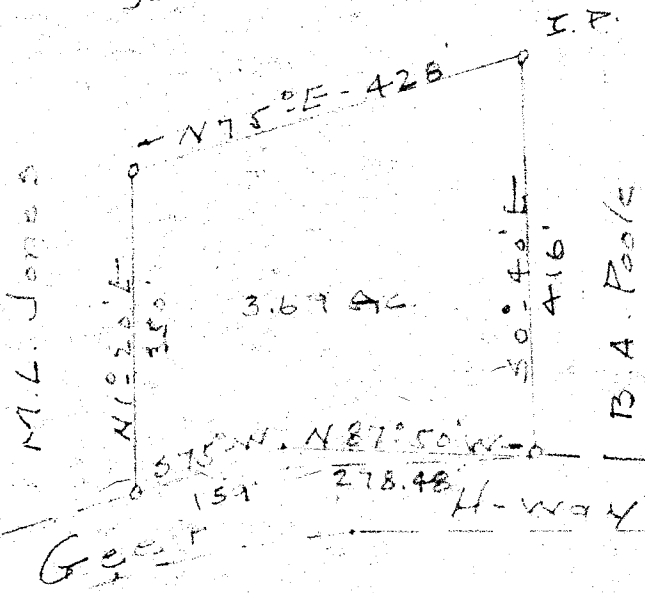 I.P.
N75°E - 428'
M.L. Jones
N1°20'E
350'
3.69 Ac.
S0°40'E
416'
B.A. Poole
S75°W. N87°50'W
159' 278.48'
Geer H-way